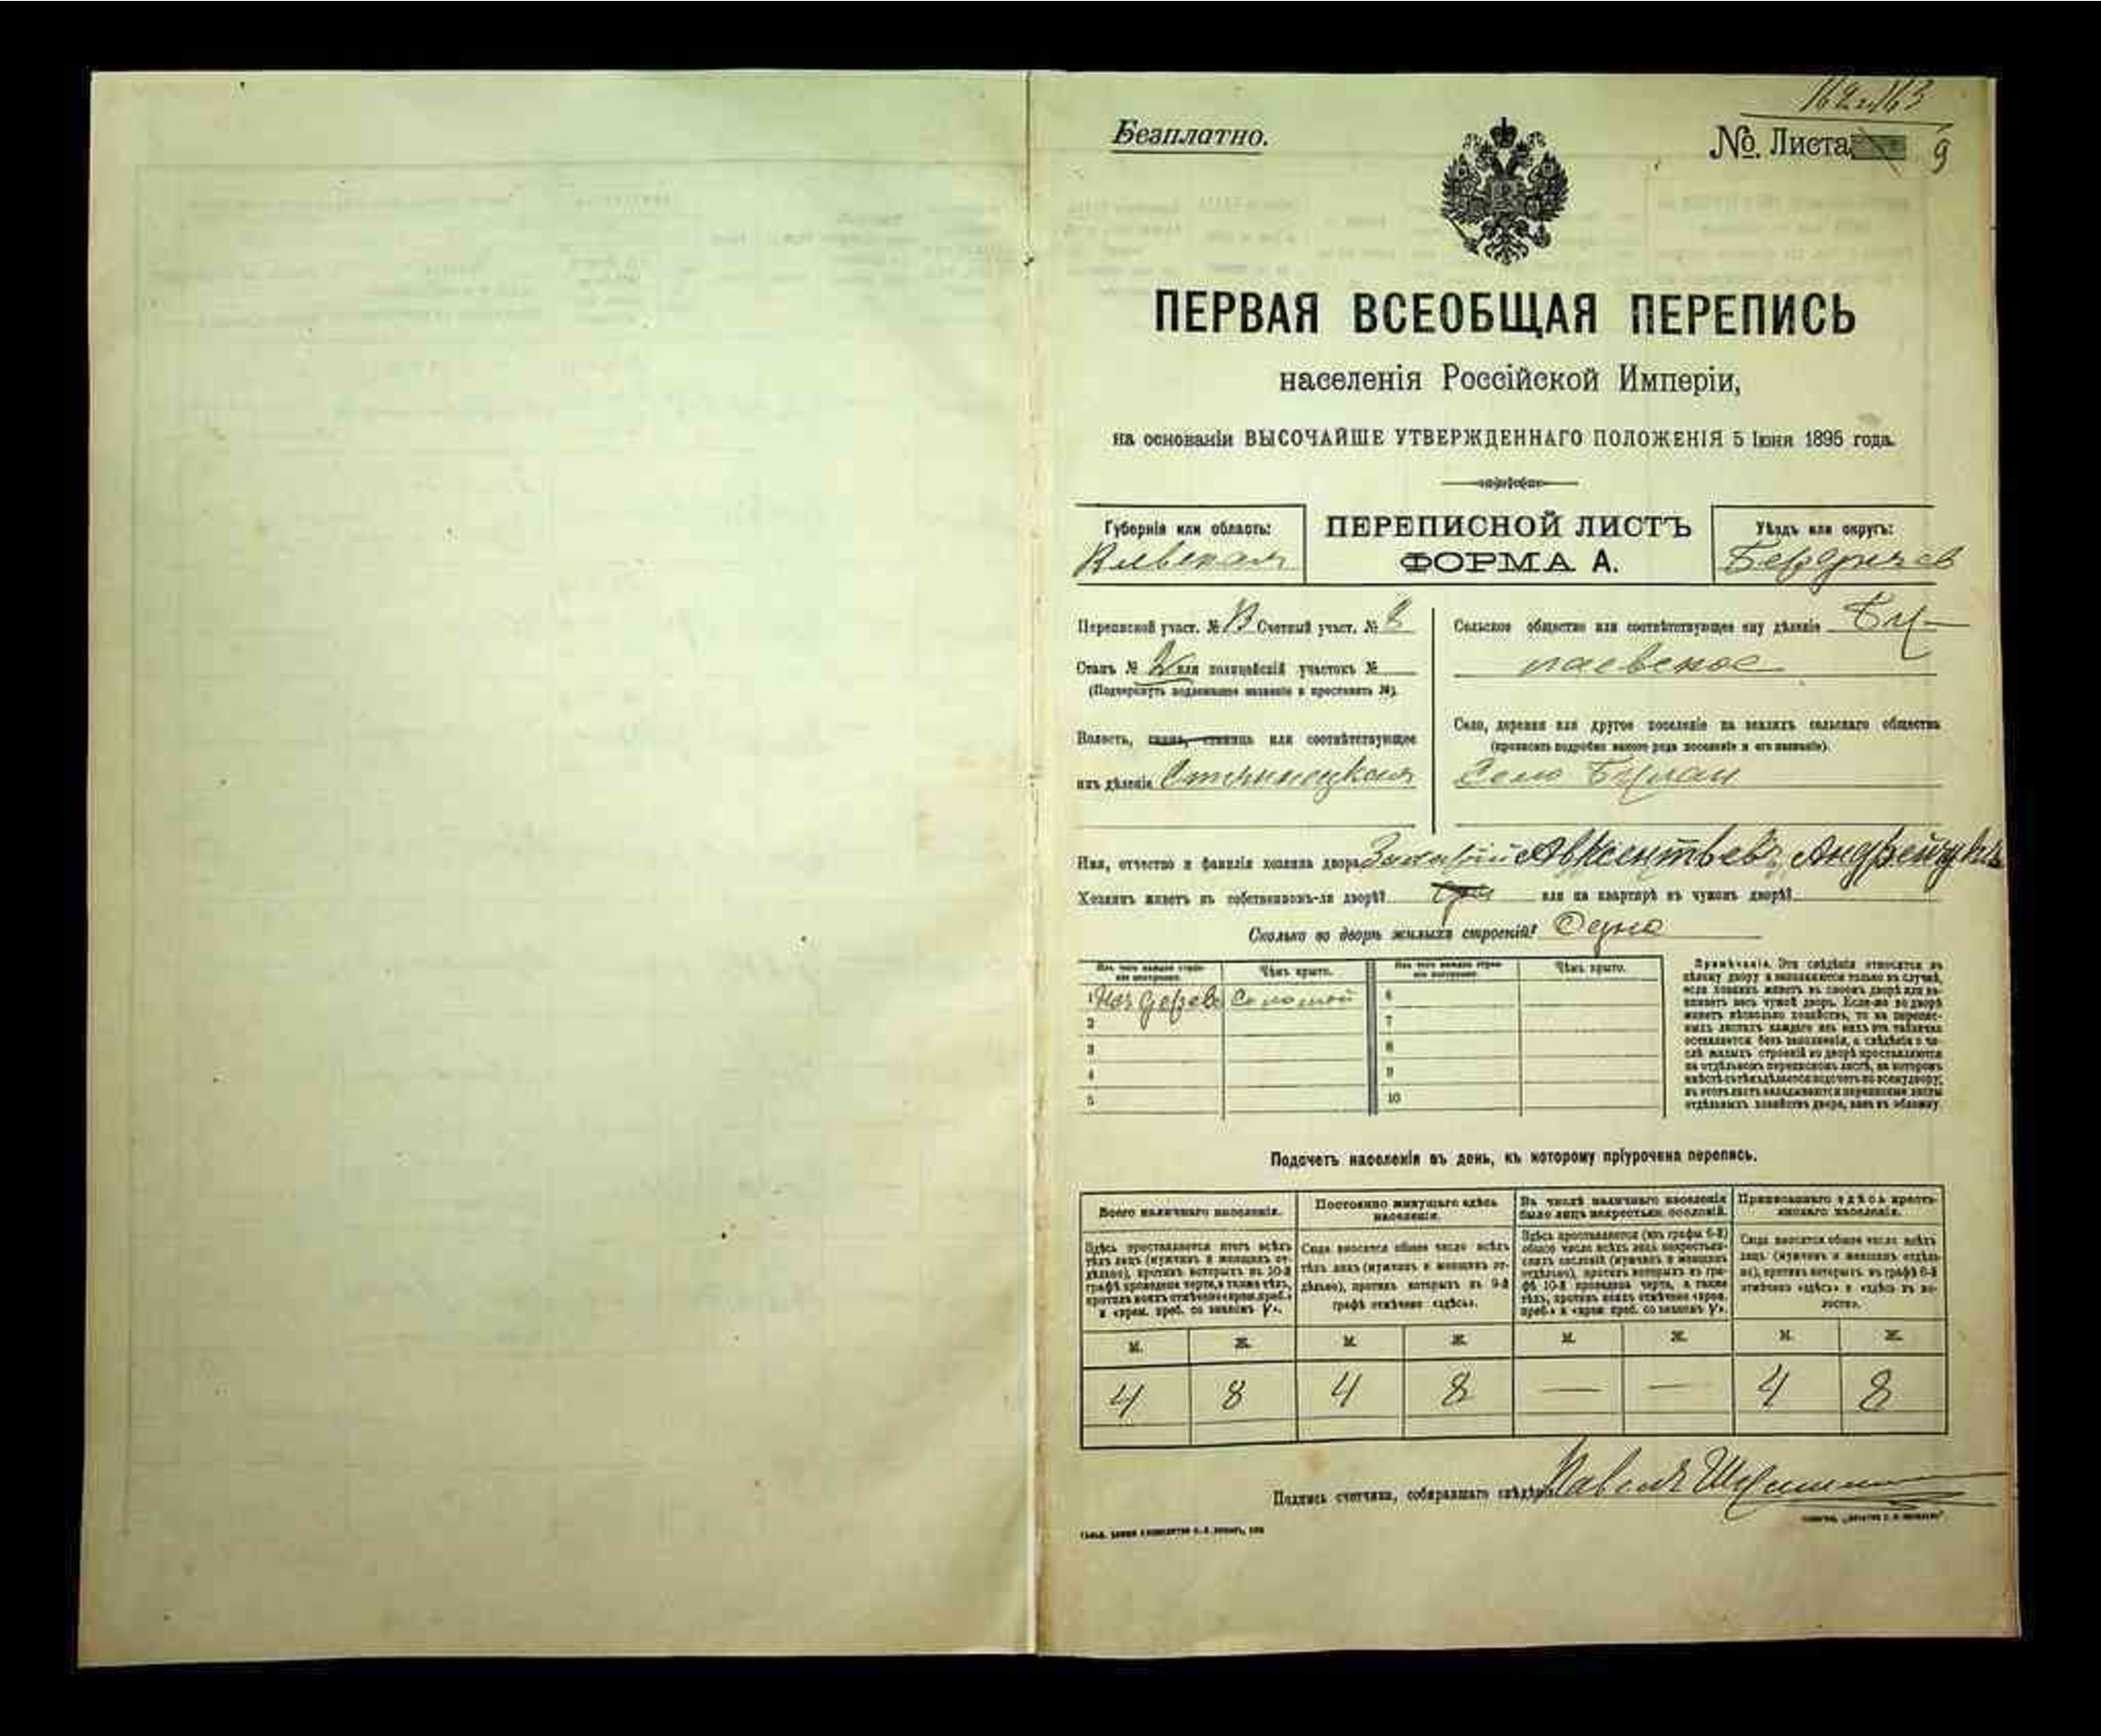 Безплатно.
№. Листа 9
ПЕРВАЯ ВСЕОБЩАЯ ПЕРЕПИСЬ
населенія Россійской Имперіи,
на основаніи ВЫСОЧАЙШЕ УТВЕРЖДЕННАГО ПОЛОЖЕНІЯ 5 Іюня 1895 года.
Губернія или область:
Кіевская
ПЕРЕПИСНОЙ ЛИСТЪ
ФОРМА А.
Уѣздъ или округъ:
Бердичев
Переписной участ. № Счетный участ. №
Станъ № 2 или полицейскій участокъ №
(Подчеркнуть подлежащее названіе и проставить №).
Волость, гмина, станица или соотвѣтствующее
имъ дѣленіе
Сельское общество или соотвѣтствующее ему дѣленіе
Село, деревня или другое поселеніе на земляхъ сельскаго общества
(прописать подробно какого рода поселеніе и его названіе).
Село
Имя, отчество и фамилія хозяина двора Авксентьевъ Андрейчукъ
Хозяинъ живетъ въ собственномъ-ли дворѣ? или на квартирѣ въ чужомъ дворѣ?
Сколько во дворѣ жилыхъ строеній? Одно
Изъ чего каждое строеніе построено.
Чѣмъ крыто.
Изъ чего каждое строеніе построено.
Чѣмъ крыто.
1 Изъ дерева Соломой 6
2 7
3 8
4 9
5 10
Примѣчаніе. Эти свѣдѣнія относятся къ
цѣлому двору и заполняются только въ случаѣ,
если хозяинъ живетъ въ своемъ дворѣ или за-
нимаетъ весь чужой дворъ. Если-же во дворѣ
живетъ нѣсколько хозяйствъ, то на перепис-
ныхъ листахъ каждаго изъ нихъ эта табличка
оставляется безъ заполненія, а свѣдѣнія о чи-
слѣ жилыхъ строеній во дворѣ проставляются
на отдѣльномъ переписномъ листѣ, на которомъ
вмѣстѣ съ тѣмъ дѣлается подсчетъ по всему двору;
въ этотъ листъ вкладываются переписные листы
отдѣльныхъ хозяйствъ двора, какъ въ обложку.
Подсчетъ населенія въ день, къ которому пріурочена перепись.
Всего наличнаго населенія.
Постоянно живущаго здѣсь
населенія.
Въ числѣ наличнаго населенія
было лицъ некрестьян. сословій.
Приписаннаго здѣсь кресть-
янскаго населенія.
Здѣсь проставляется итогъ всѣхъ
тѣхъ лицъ (мужчинъ и женщинъ от-
дѣльно), противъ которыхъ въ 10-й
графѣ проведена черта, а также тѣхъ,
противъ коихъ отмѣчено «врем. преб.»
и «врем. преб. со знакомъ V».
Сюда вносится общее число всѣхъ
тѣхъ лицъ (мужчинъ и женщинъ от-
дѣльно), противъ которыхъ въ 9-й
графѣ отмѣчено «здѣсь».
Здѣсь проставляется (изъ графы 6-й)
общее число всѣхъ лицъ некрестьян-
скихъ сословій (мужчинъ и женщинъ
отдѣльно), противъ которыхъ въ гра-
фѣ 10-й проведена черта, а также
тѣхъ, противъ коихъ отмѣчено «врем.
преб.» и «врем. преб. со знакомъ V».
Сюда вносится общее число всѣхъ
лицъ (мужчинъ и женщинъ отдѣль-
но), противъ которыхъ въ графѣ 8-й
отмѣчено «здѣсь» и «здѣсь въ во-
лости».
М. Ж. М. Ж. М. Ж. М. Ж.
4 8 4 8 — — 4 8
Подпись счетчика, собиравшаго свѣдѣнія